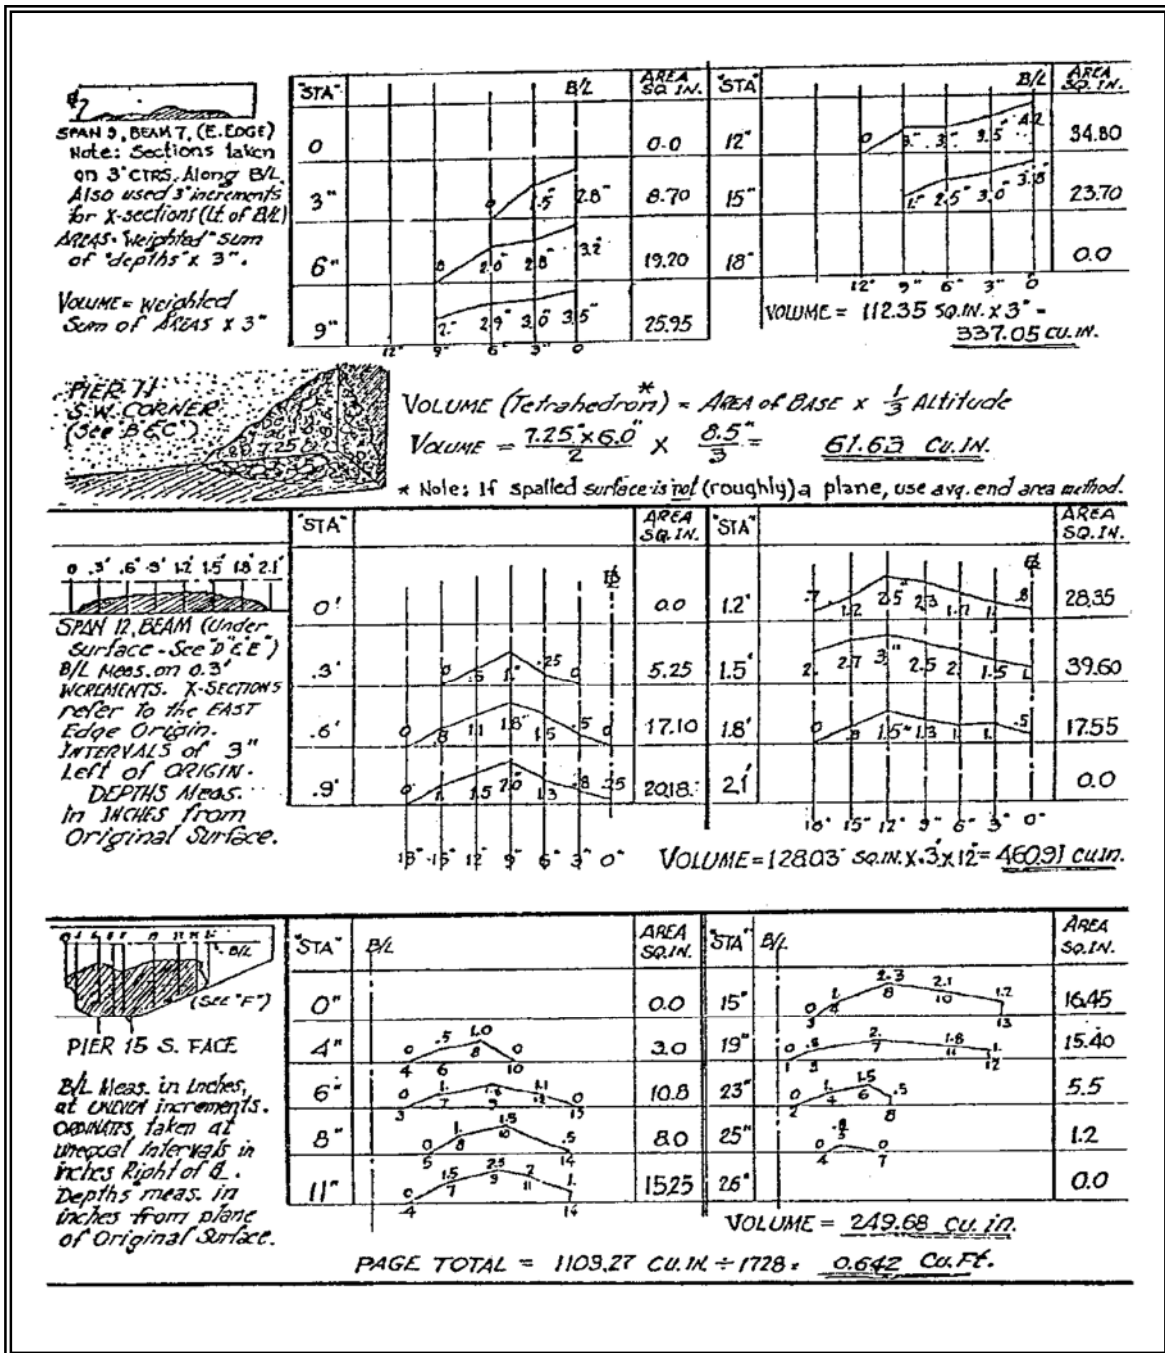 "STA"
B/L
AREA
SQ. IN.
"STA"
B/L
AREA
SQ. IN.
SPAN 9, BEAM 7, (E. EDGE)
Note: Sections taken
on 3" CTRS. Along B/L.
Also used 3" increments
for X-sections (Lt. of B/L)
AREAS = "Weighted" Sum
of "depths" x 3".
VOLUME = Weighted
Sum of AREAS x 3"
0
0.0
12"
0 3." 3." 3.5" 4.2
34.80
3"
0 1.5" 2.8"
8.70
15"
1." 2.5" 3.0" 3.8"
23.70
6"
0 2.0" 2.8" 3.2"
19.20
18"
0.0
9"
2." 2.9" 3.0" 3.5"
25.95
12" 9" 6" 3" 0
12" 9" 6" 3" 0
VOLUME = 112.35 SQ.IN. x 3" =
337.05 CU.IN.
PIER 11
S.W. CORNER
(See B & C)
7.25"
VOLUME (Tetrahedron*) = AREA of BASE x 1/3 Altitude
VOLUME = 7.25" x 6.0" / 2 x 8.5" / 3 = 61.63 CU.IN.
* Note: If spalled surface is not (roughly) a plane, use avg. end area method.
"STA"
AREA
SQ. IN.
"STA"
AREA
SQ. IN.
0 .3' .6' .9' 1.2' 1.5' 1.8' 2.1'
SPAN 12, BEAM (Under
surface - See "D" & "E")
B/L Meas. on 0.3'
INCREMENTS. X-SECTIONS
refer to the EAST
Edge Origin.
INTERVALS of 3"
Left of ORIGIN.
DEPTHS Meas.
in INCHES from
Original Surface.
B/L
B/L
0'
0.0
1.2'
.7 1.2 2.5" 2.3 1.7 1. .8
28.35
.3'
0 .5 1." .25 0
5.25
1.5'
2. 2.7 3." 2.5 2. 1.5 1.
39.60
.6'
0 .8 1.1 1.8" 1.5 .5 0
17.10
1.8'
0 .8 1.5" 1.3 1. 1. .5
17.55
.9'
0 1. 1.5 2.0" 1.3 .8 .25
20.18
2.1'
0.0
18" 15" 12" 9" 6" 3" 0"
18" 15" 12" 9" 6" 3" 0"
VOLUME = 128.03 SQ.IN. x .3' x 12" = 460.91 cu.in.
B/L
(SEE "F")
"STA"
B/L
AREA
SQ.IN.
"STA"
B/L
AREA
SQ.IN.
PIER 15 S. FACE
B/L Meas. in Inches,
at UNEVEN increments.
ORDINATES taken at
unequal Intervals in
inches Right of B/L.
Depths meas. in
inches from plane
of Original Surface.
0"
0.0
15"
0 2. 2.3 2.1 1.2
3 4 8 10 13
16.45
4"
0 .5 1.0 0
4 6 8 10
3.0
19"
0 .8 2. 1.8 1.
1 3 7 11 12
15.40
6"
0 1. 1.8 1.1 0
3 7 9 12 15
10.8
23"
0 1. 1.5 .5
2 4 6 8
5.5
8"
0 1. 1.5 .5
5 8 10 14
8.0
25"
0 .8 0
4 5 7
1.2
11"
0 1.5 2.5 2 1.
4 7 9 11 14
15.25
26"
0.0
VOLUME = 249.68 cu. in.
PAGE TOTAL = 1109.27 CU.IN ÷ 1728 = 0.642 Cu.Ft.